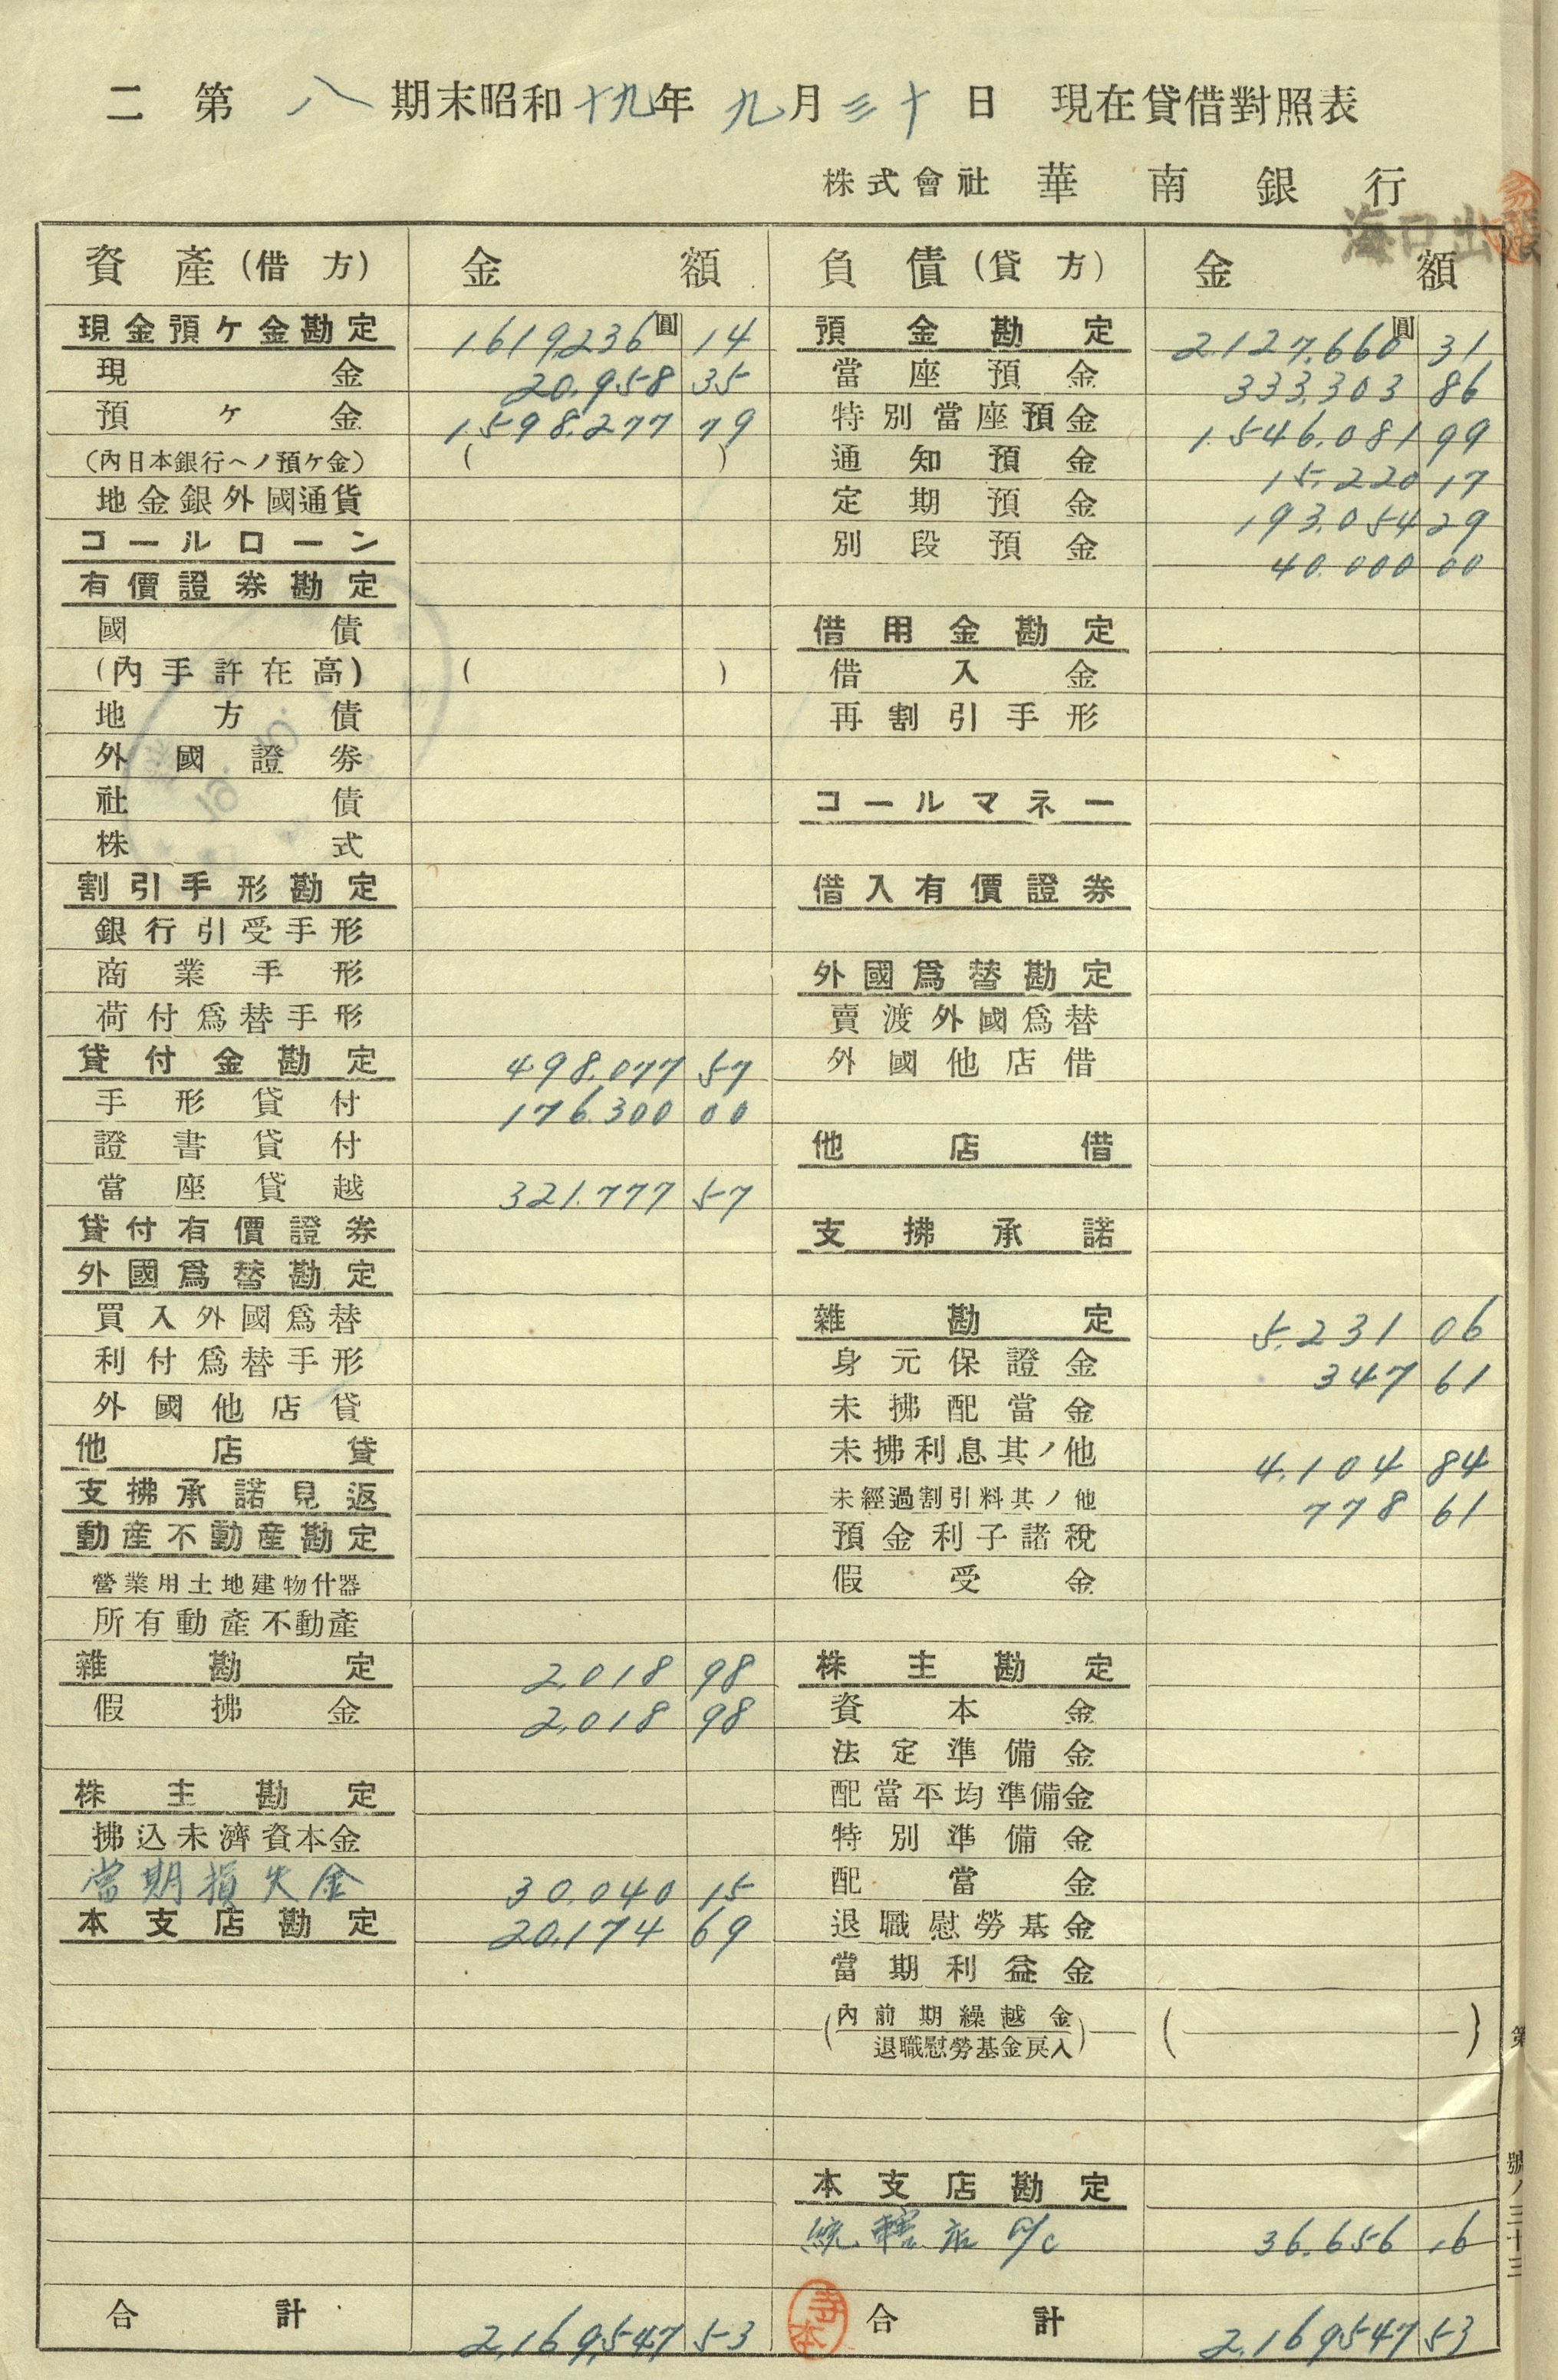 二 第 八 期末昭和十九年 九月三十日 現在貸借對照表
株式會社 華南銀行
海口出張
資產(借方) 金額 負債(貸方) 金額
現金預ケ金勘定 1,619,236圓 14 預金勘定 2,127,660圓 31
現金 20,958 35 當座預金 333,303 86
預ケ金 1,598,277 79 特別當座預金 1,546,081 99
(內日本銀行ヘノ預ケ金) ( ) 通知預金 15,220 17
地金銀外國通貨 定期預金 193,054 29
コールローン 別段預金 40,000 00
有價證券勘定
國債 借用金勘定
(內手許在高) ( ) 借入金
地方債 再割引手形
外國證券
社債 コールマネー
株式
割引手形勘定 借入有價證券
銀行引受手形
商業手形 外國爲替勘定
荷付爲替手形 賣渡外國爲替
貸付金勘定 498,077 57 外國他店借
手形貸付 176,300 00
證書貸付 他店借
當座貸越 321,777 57
貸付有價證券 支拂承諾
外國爲替勘定
買入外國爲替 雜勘定 5,231 06
利付爲替手形 身元保證金 347 61
外國他店貸 未拂配當金
他店貸 未拂利息其ノ他 4,104 84
支拂承諾見返 未經過割引料其ノ他 778 61
動產不動產勘定 預金利子諸稅
營業用土地建物什器 假受金
所有動產不動產
雜勘定 2,018 98 株主勘定
假拂金 2,018 98 資本金
法定準備金
株主勘定 配當平均準備金
拂込未濟資本金 特別準備金
當期損失金 30,040 15 配當金
本支店勘定 20,174 69 退職慰勞基金
當期利益金
(內前期繰越金
退職慰勞基金戾入) ( )
本支店勘定
統轄店 a/c 36,656 16
合計 2,169,547 53 合計 2,169,547 53
第
號八三十三